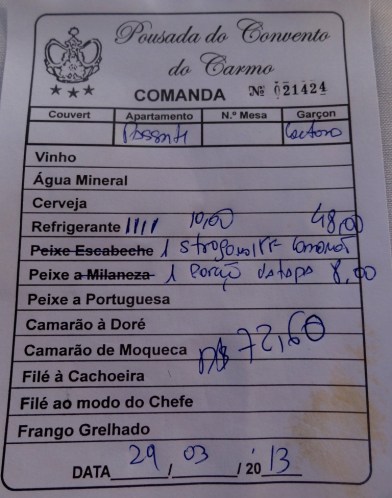 Pousada do Convento
do Carmo
COMANDA Nº 021424
Couvert Apartamento N.º Mesa Garçon
Passante Caetano
Vinho
Água Mineral
Cerveja
Refrigerante IIII 10,00 48,00
Peixe Escabeche 1 Strogonoff Camarão
Peixe a Milaneza 1 Porção batata 8,00
Peixe a Portuguesa
Camarão à Doré
Camarão de Moqueca R$ 72,60
Filé à Cachoeira
Filé ao modo do Chefe
Frango Grelhado
DATA 29 / 03 / 20 13